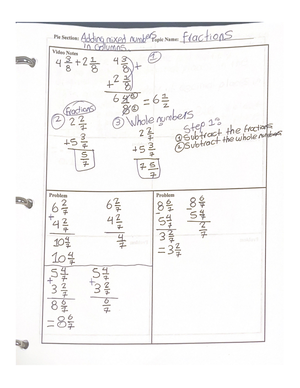 Pie Section: Adding mixed numbers in columns Topic Name: fractions
Video Notes
4 3/8 + 2 1/8
4 3/8
+ 2 1/8
6 4/8 = 6 1/2
①
② fractions
2 2/7
+ 5 3/7
5/7
③ Whole numbers
2 2/7
+ 5 3/7
7 5/7
Step 1:
① Subtract the fractions
② Subtract the whole numbers
Problem
6 2/7
+ 4 2/7
10 4/7
10 4/7
6 2/7
4 2/7
4/7
5 4/7
+ 3 2/7
8 6/7
= 8 6/7
5 4/7
+ 3 2/7
6/7
Problem
8 6/7
- 5 4/7
3 2/7
= 3 2/7
8 6/7
- 5 4/7
2/7